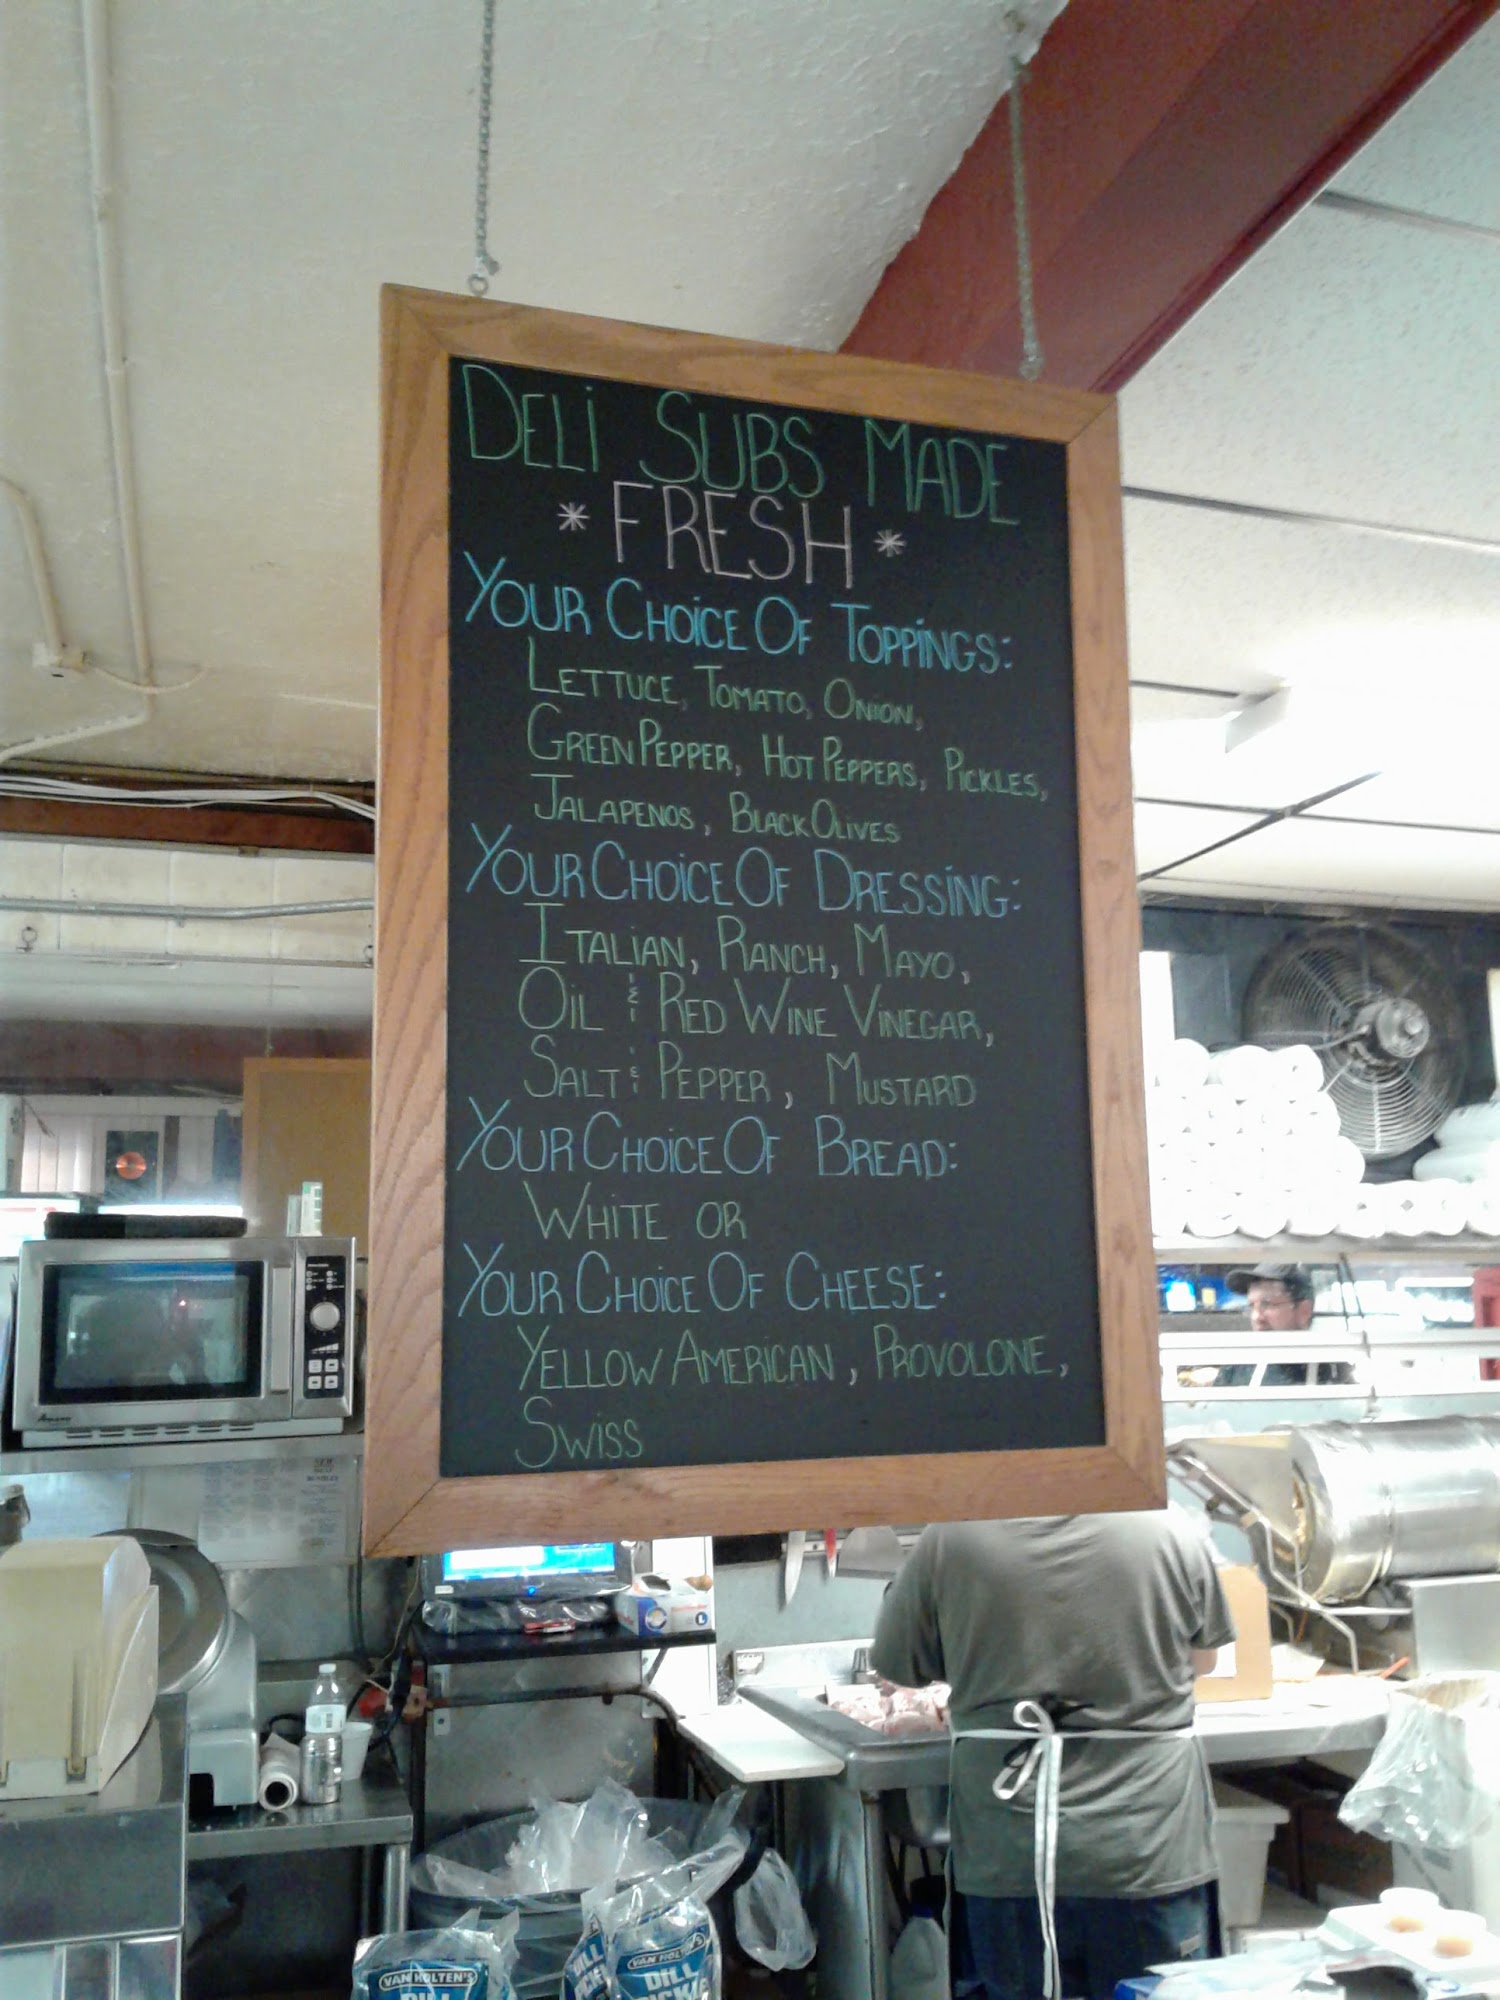 DELI SUBS MADE
* FRESH *
YOUR CHOICE OF TOPPINGS:
LETTUCE, TOMATO, ONION,
GREEN PEPPER, HOT PEPPERS, PICKLES,
JALAPENOS, BLACK OLIVES
YOUR CHOICE OF DRESSING:
ITALIAN, RANCH, MAYO,
OIL & RED WINE VINEGAR,
SALT & PEPPER, MUSTARD
YOUR CHOICE OF BREAD:
WHITE OR
YOUR CHOICE OF CHEESE:
YELLOW AMERICAN, PROVOLONE,
SWISS
VAN HOLTEN'S
DILL
VAN HOLTEN'S
DILL